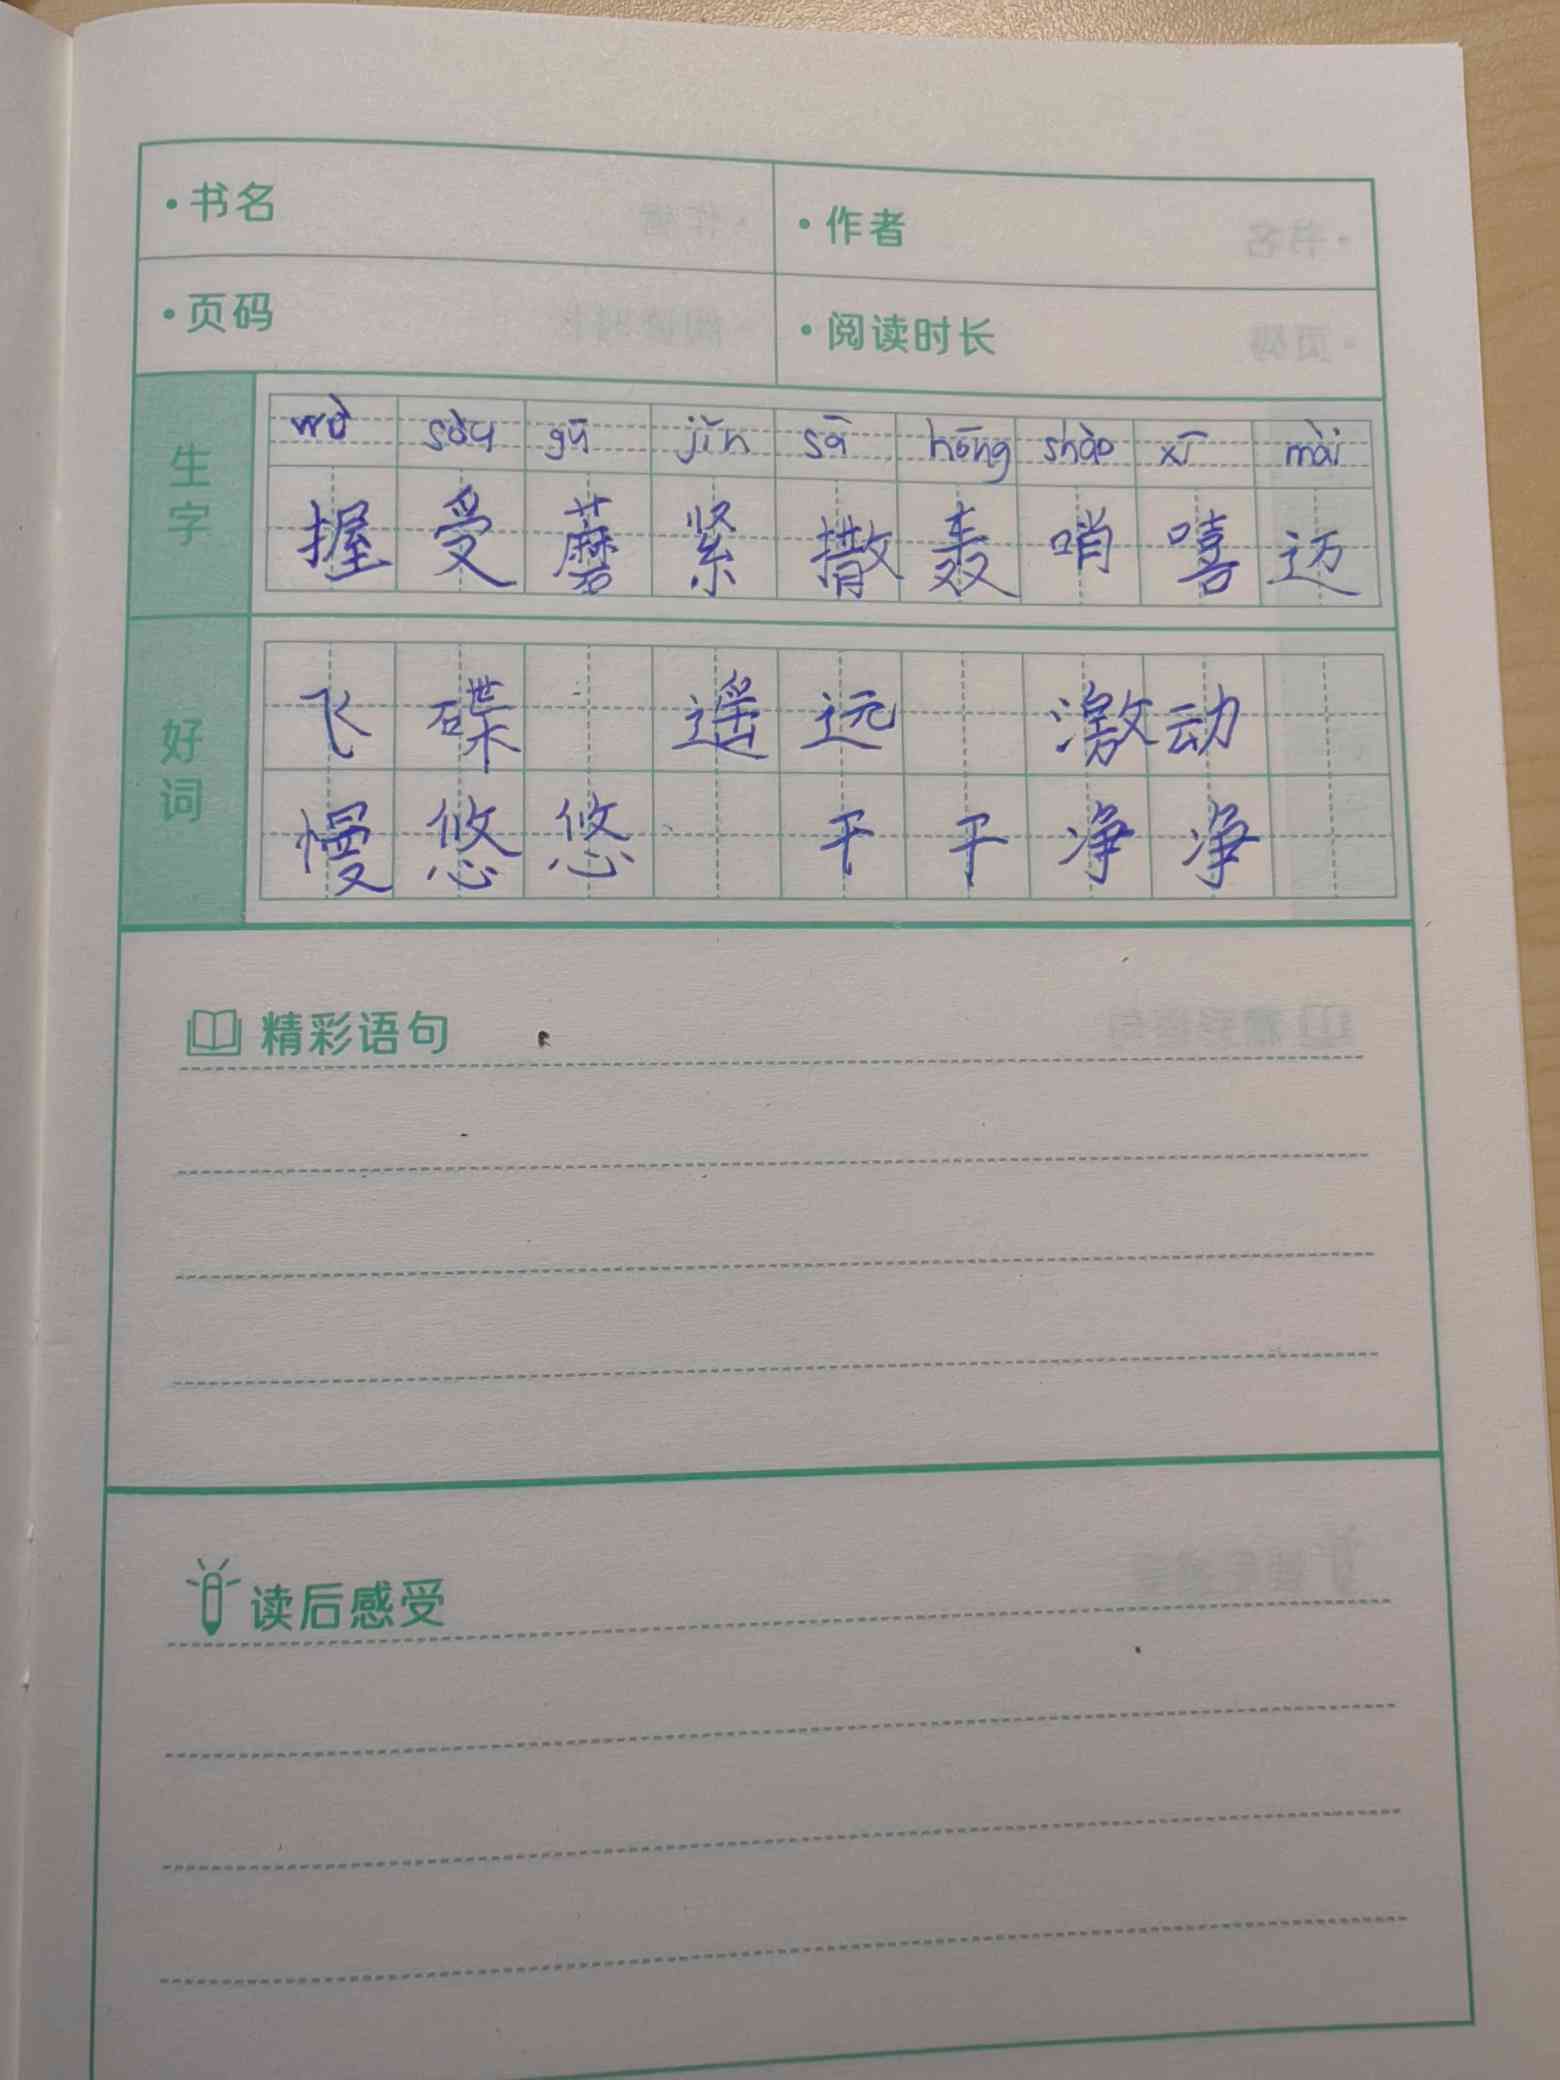 ·书名
·作者
·页码
·阅读时长
生字
wò sòu gū jǐn sā hōng shào xī mài
握 受 蘑 紧 撒 轰 哨 嘻 迈
好词
飞碟 遥远 激动
慢悠悠 干干净净
精彩语句
读后感受